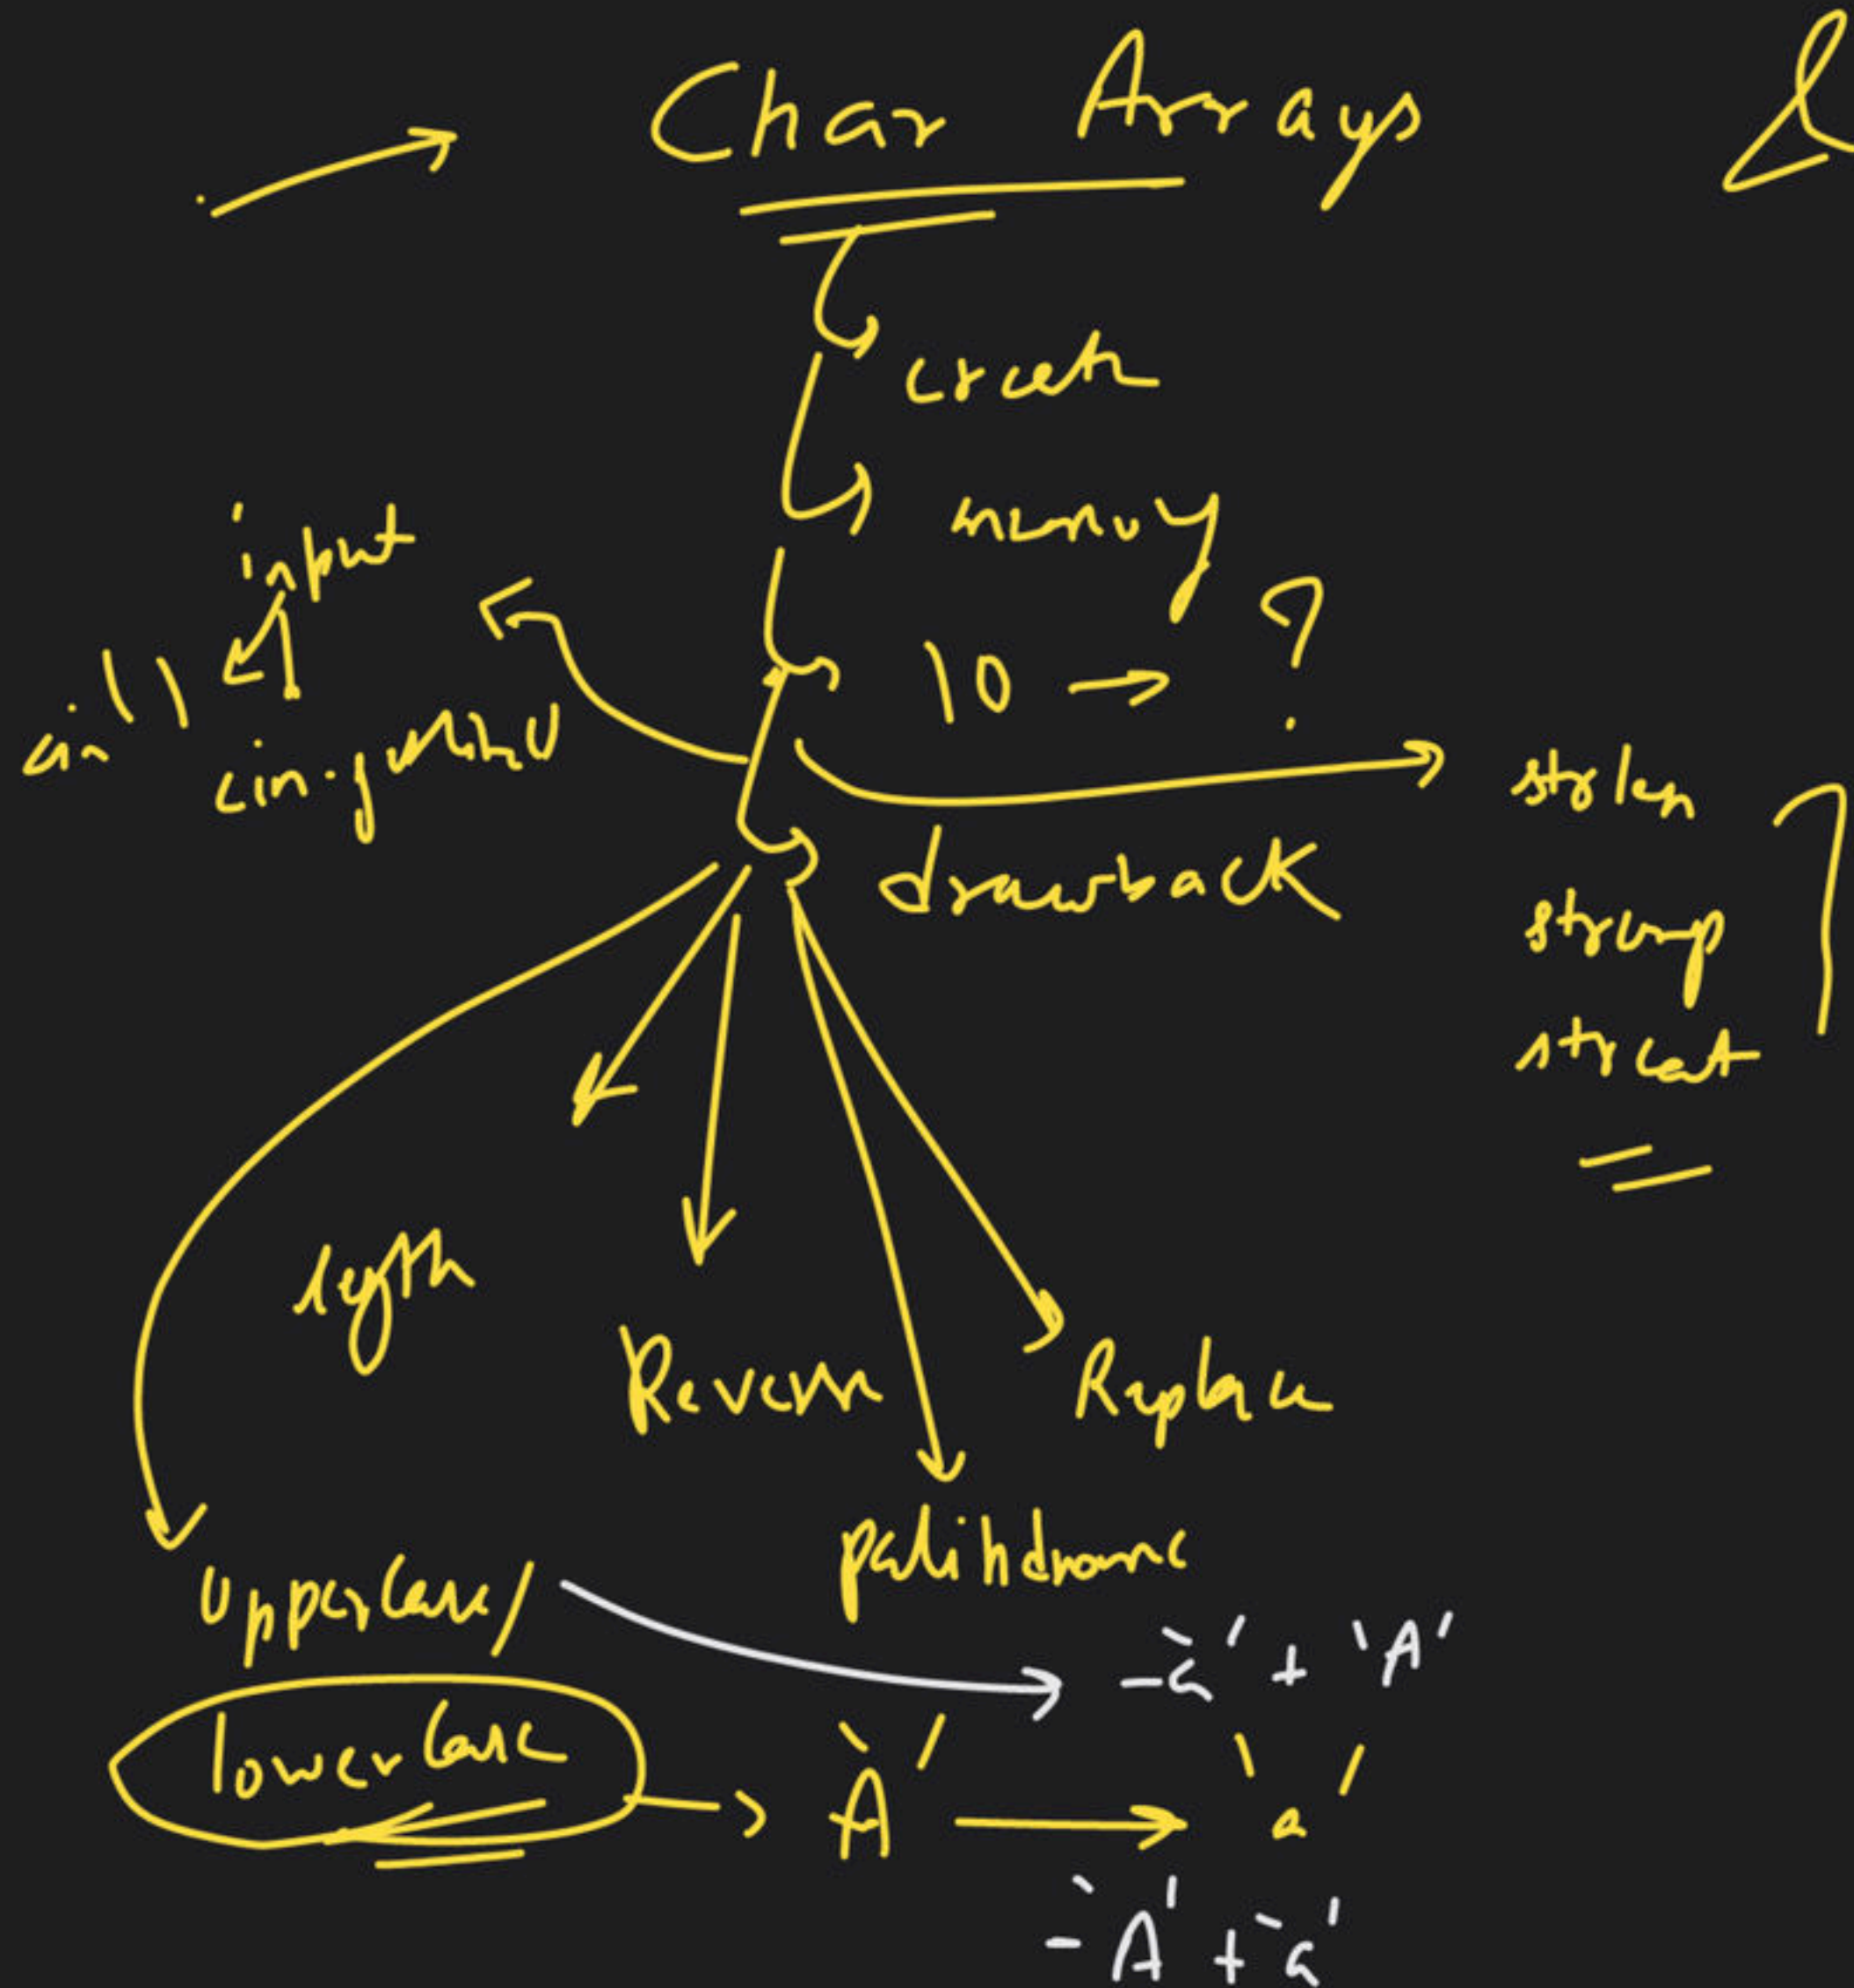 Char Arrays &
create
memory
input
10 → ?
cin
cin.getline()
strlen
drawback
strcmp
strcat
length
Reverse
Replace
palindrome
Uppercase/
-'a' + 'A'
lowercase → 'A' → 'a'
-'A' + 'a'